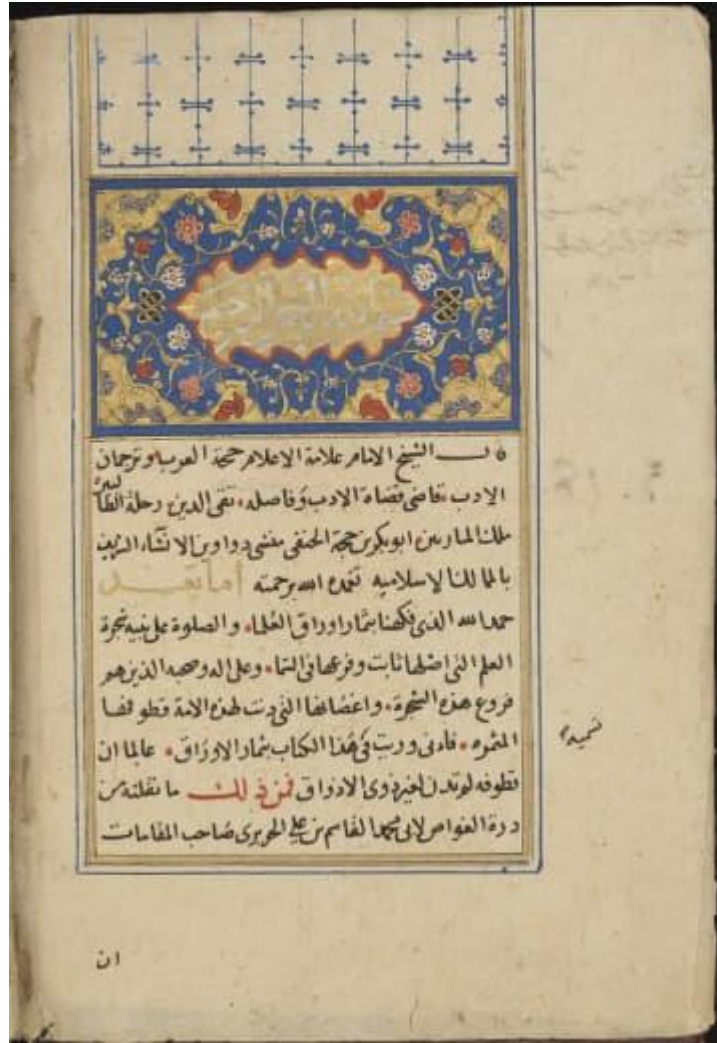 قال الشيخ الامام علامة الاعلام حجة العرب وترجمان
الادب قاضى قضاة الادب وفاضله تقى الدين رحلة الطالبين
ملك المادبين ابو بكر بن حجة الحنفى منشى دواوين الانشاء الشريف
بالممالك الاسلاميه تغمده الله برحمته اما بعد
حمد الله الذى فكهنا بثمار اوراق العلماء والصلوة على نبيه شجرة
العلم التى اصلها ثابت وفرعها فى السماء وعلى اله وصحبه الذين هم
فروع هذه الشجرة واغصانها التى دنت لهذه الامة قطوفها
المثمره فانى وريت فى هذا الكتاب بثمار الاوراق عالما ان
قطوفه لم تدن لغير ذوى الاذواق فمن ذلك ما نقلته من
درة الغواص لابى محمد القاسم بن على الحريرى صاحب المقامات
تسميه
ان